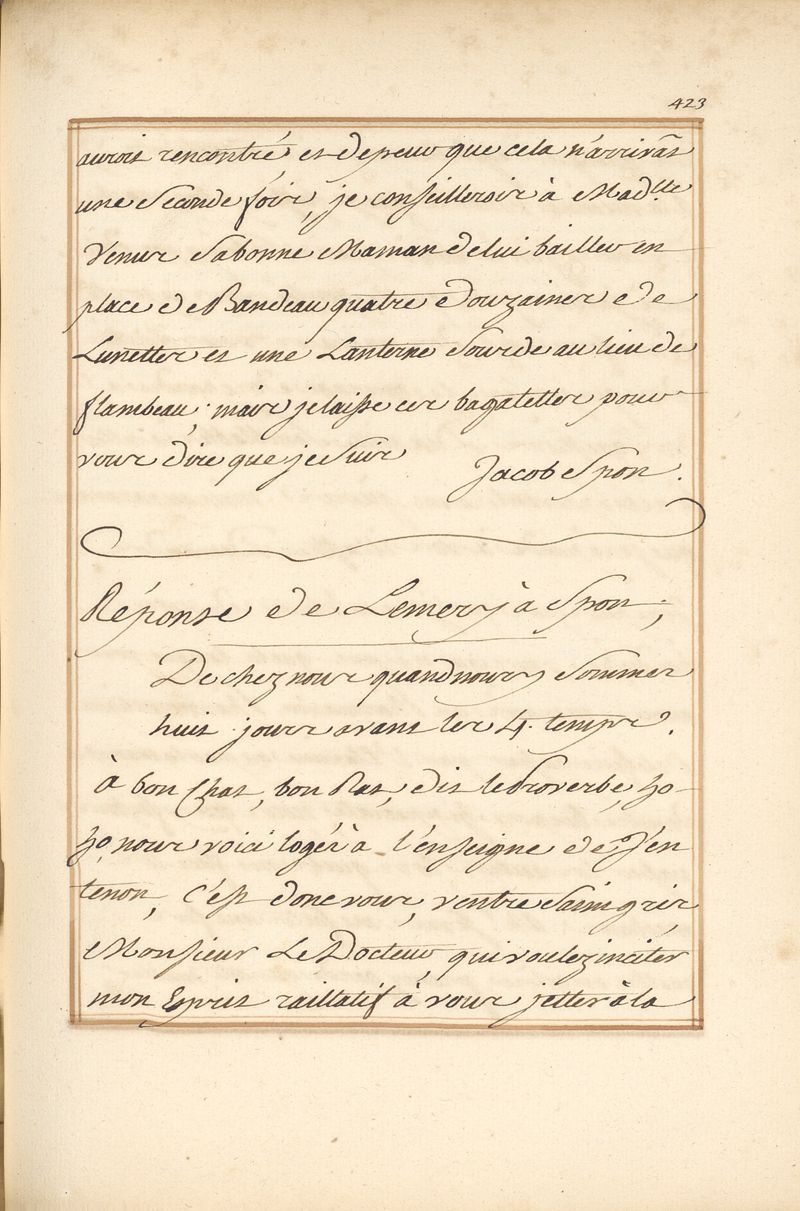 423
auroit rencontré, et de peur que cela n'arrivât
une Seconde fois, je conseillerois à Mad.lle
Venus Sa bonne Maman de lui bailler en
place de Bandeau quatre douzaines de
Lunettes et une Lanterne Sourde au lieu de
flambeau; mais je laisse ces bagatelles pour
vous dire que je Suis
Jacob Spon.
Réponse de Lemery à Spon;
De chez nous quand nous y Sommes
huit jours avant les 4. temps.
à bon Chat, bon Rat, dit le Proverbe, ho
ho, nous voici logés à l'enseigne de J'en
tenon, C'est donc vous, ventre Saint gris,
Monsieur Le Docteur, qui voulez inciter
mon Esprit raillatif à vous jetter à la